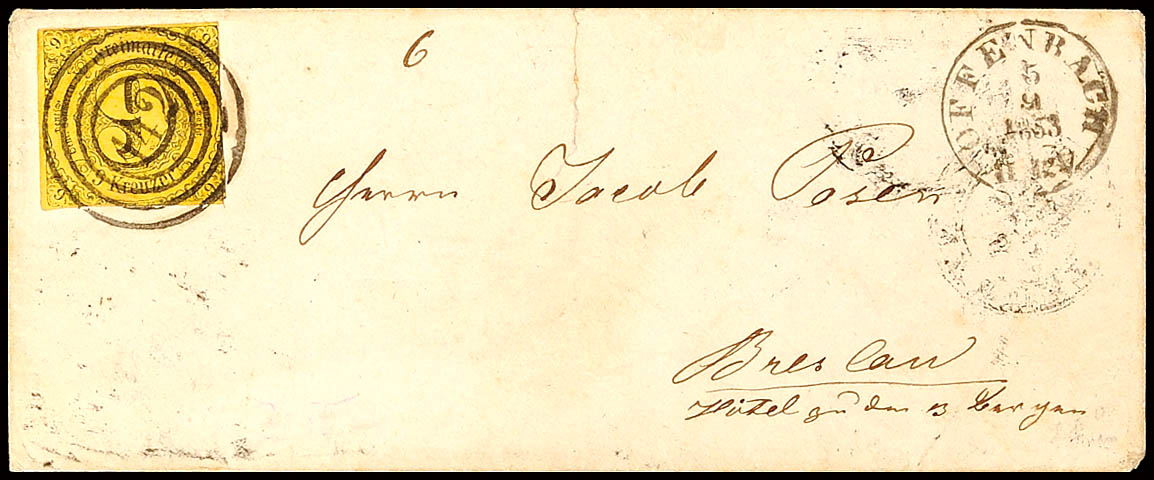 9 9
Freimarke
9 Kreuzer
9 9
6
OFFENBACH
5
9
1853
Herrn Jacob Posen
Breslau
Hôtel zu den 3 Bergen